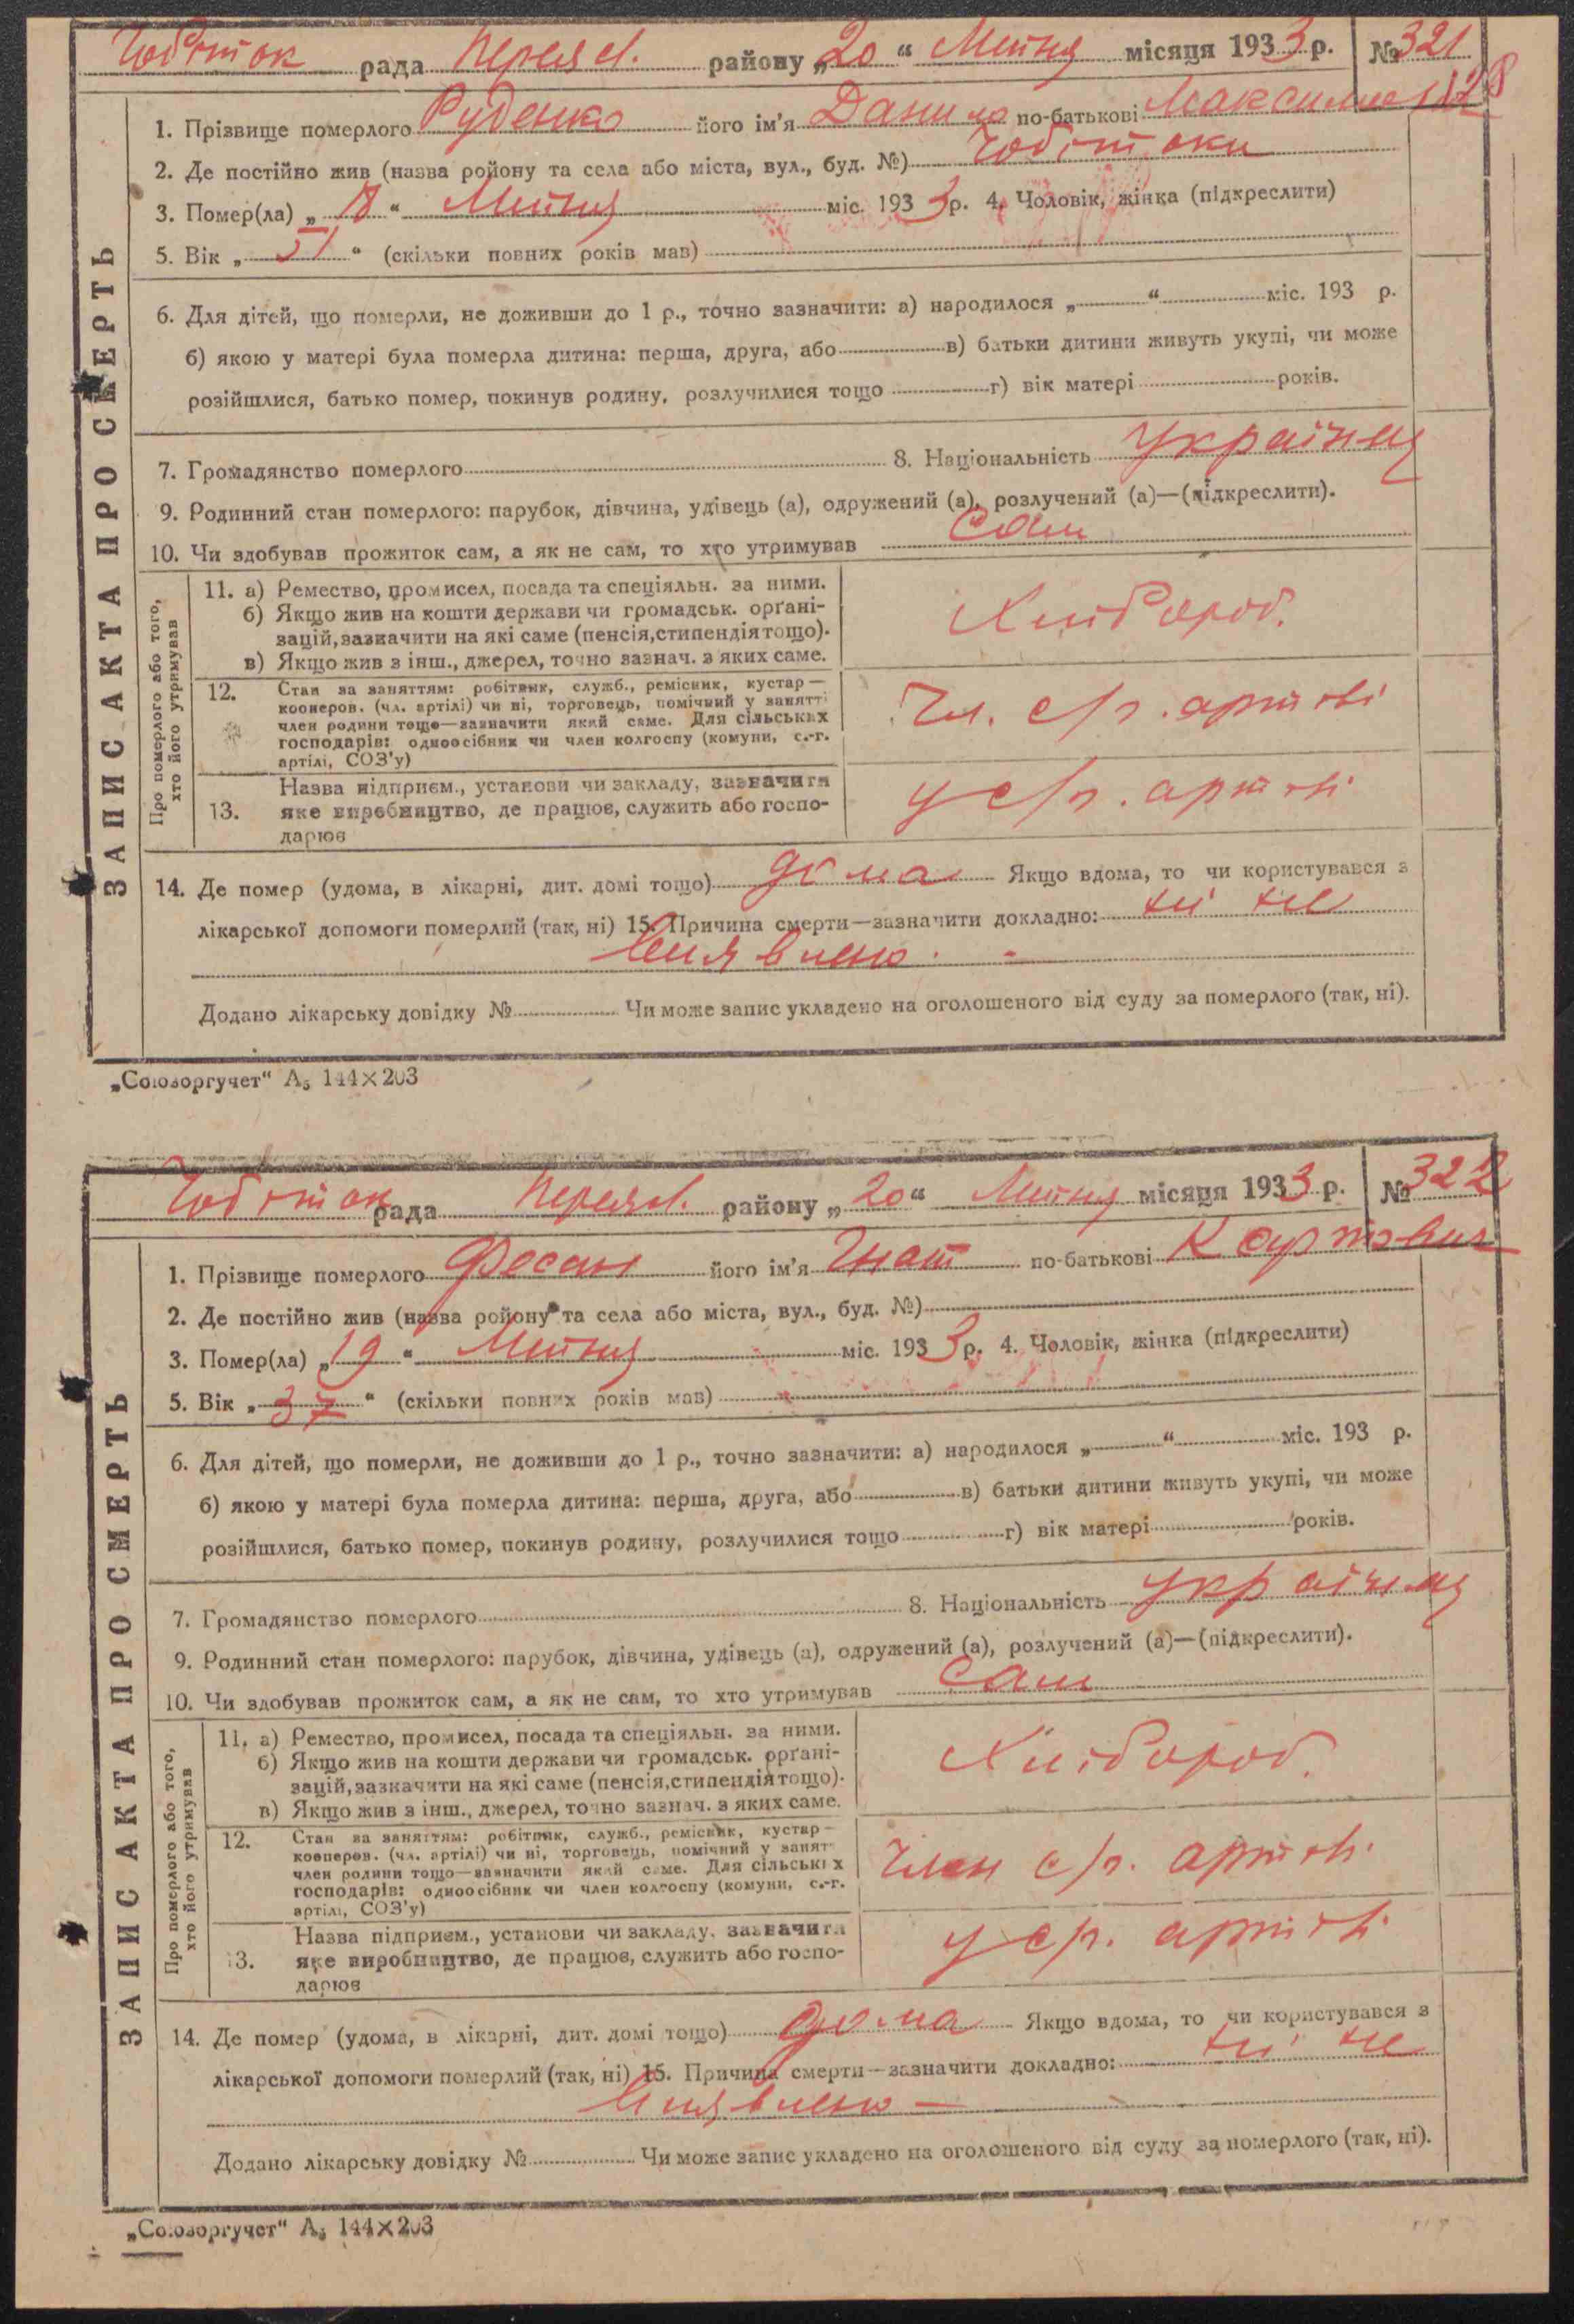 Чобіток рада Переясл. району „20“ Липня місяця 1933 р. №321
128
1. Прізвище померлого Руденко його ім'я Данило по-батькові
2. Де постійно жив (назва ройону та села або міста, вул., буд. №) Чобітоки
3. Помер(ла) „18“ Липня міс. 1933 р. 4. Чоловік, жінка (підкреслити)
5. Вік „51“ (скільки повних років мав)
6. Для дітей, що померли, не доживши до 1 р., точно зазначити: а) народилося „ “ міс. 193 р.
б) якою у матері була померла дитина: перша, друга, або в) батьки дитини живуть укупі, чи може
розійшлися, батько помер, покинув родину, розлучилися тощо г) вік матері років.
7. Громадянство померлого 8. Національність україни
9. Родинний стан померлого: парубок, дівчина, удівець (а), одружений (а), розлучений (а)—(підкреслити).
10. Чи здобував прожиток сам, а як не сам, то хто утримував Сам
ЗАПИС АКТА ПРО СМЕРТЬ
Про померлого або того,
хто його утримував
11. а) Ремество, промисел, посада та спеціяльн. за ними.
б) Якщо жив на кошти держави чи громадськ. орґані-
зацій, зазначити на які саме (пенсія, стипендія тощо).
в) Якщо жив з інш., джерел, точно зазнач. з яких саме.
Хлібороб.
12. Стан за заняттям: робітник, служб., ремісник, кустар—
кооперов. (чл. артілі) чи ні, торговець, помічний у занятті
член родини тощо—зазначити який саме. Для сільських
господарів: одноосібник чи член колгоспу (комуни, с.-г.
артілі, СОЗ'у)
Чл. с/г. артілі
13. Назва підприєм., установи чи закладу, зазначити
яке виробництво, де працює, служить або госпо-
дарює
у с/г. артілі
14. Де помер (удома, в лікарні, дит. домі тощо) дома Якщо вдома, то чи користувався з
лікарської допомоги померлий (так, ні) 15. Причина смерти—зазначити докладно: ні не
виявлено. -
Додано лікарську довідку № Чи може запис укладено на оголошеного від суду за померлого (так, ні).
„Союзоргучет“ А₅ 144×203
Чобіток рада Переясл. району „20“ Липня місяця 1933 р. №322
1. Прізвище померлого Фесан його ім'я Гнат по-батькові
2. Де постійно жив (назва ройону та села або міста, вул., буд. №)
3. Помер(ла) „19“ Липня міс. 1933 р. 4. Чоловік, жінка (підкреслити)
5. Вік „37“ (скільки повних років мав)
6. Для дітей, що померли, не доживши до 1 р., точно зазначити: а) народилося „ “ міс. 193 р.
б) якою у матері була померла дитина: перша, друга, або в) батьки дитини живуть укупі, чи може
розійшлися, батько помер, покинув родину, розлучилися тощо г) вік матері років.
7. Громадянство померлого 8. Національність україни
9. Родинний стан померлого: парубок, дівчина, удівець (а), одружений (а), розлучений (а)—(підкреслити).
10. Чи здобував прожиток сам, а як не сам, то хто утримував Сам
ЗАПИС АКТА ПРО СМЕРТЬ
Про померлого або того,
хто його утримував
11. а) Ремество, промисел, посада та спеціяльн. за ними.
б) Якщо жив на кошти держави чи громадськ. орґані-
зацій, зазначити на які саме (пенсія, стипендія тощо).
в) Якщо жив з інш., джерел, точно зазнач. з яких саме.
Хлібороб.
12. Стан за заняттям: робітник, служб., ремісник, кустар—
кооперов. (чл. артілі) чи ні, торговець, помічний у занят
член родини тощо—зазначити який саме. Для сільських
господарів: одноосібник чи член колгоспу (комуни, с.-г.
артілі, СОЗ'у)
Член с/г. артілі
13. Назва підприєм., установи чи закладу, зазначити
яке виробництво, де працює, служить або госпо-
дарює
у с/г. артілі
14. Де помер (удома, в лікарні, дит. домі тощо) дома Якщо вдома, то чи користувався з
лікарської допомоги померлий (так, ні) 15. Причина смерти—зазначити докладно: ні не
виявлено —
Додано лікарську довідку № Чи може запис укладено на оголошеного від суду за померлого (так, ні).
„Союзоргучет“ А₅ 144×203